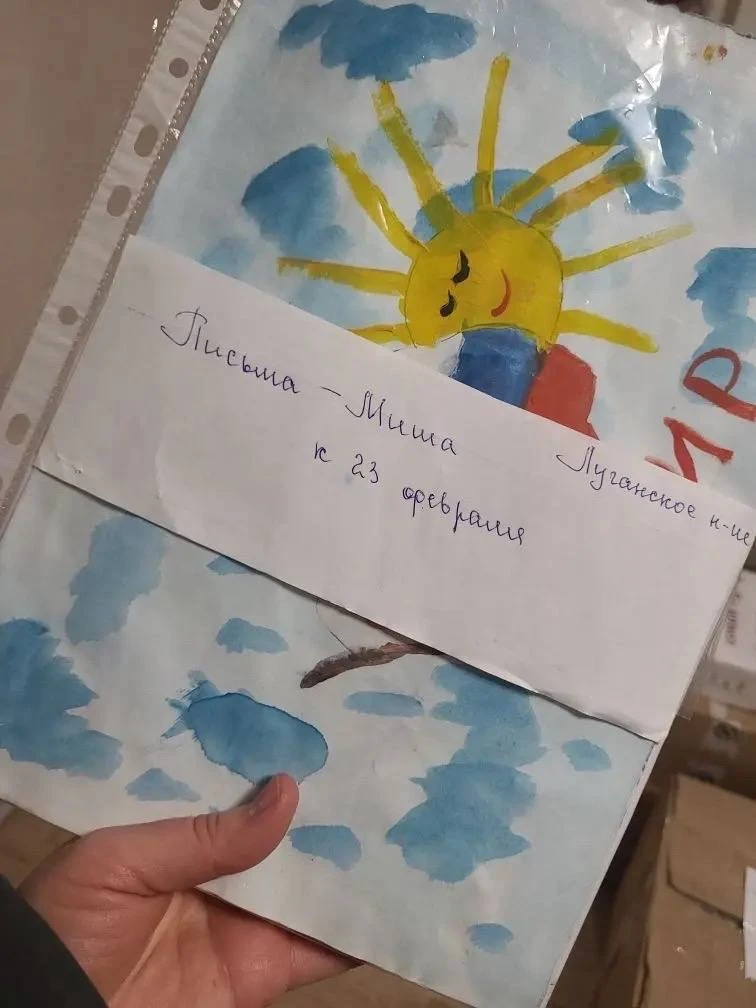 ИР
Письма - Миша Луганское н-ие
к 23 февраля